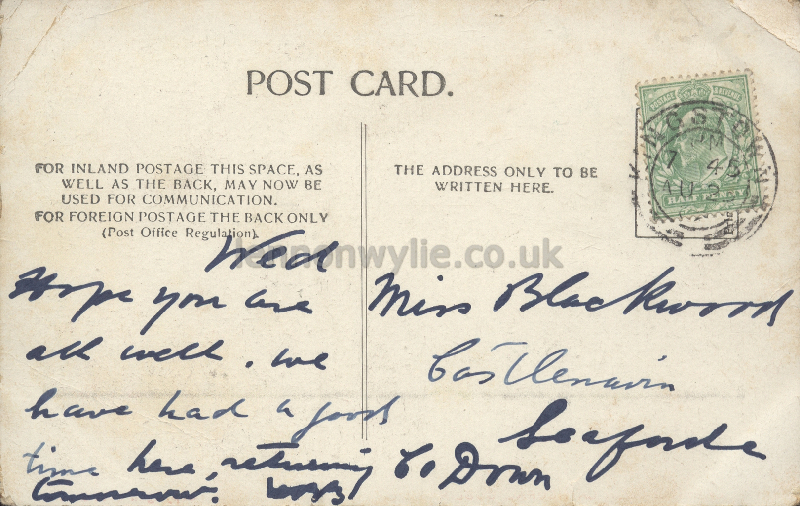 POST CARD.
FOR INLAND POSTAGE THIS SPACE, AS
WELL AS THE BACK, MAY NOW BE
USED FOR COMMUNICATION.
FOR FOREIGN POSTAGE THE BACK ONLY
(Post Office Regulation).
THE ADDRESS ONLY TO BE
WRITTEN HERE.
POSTAGE REVENUE
HALFPENNY
KINGSTOWN
7 45
AU
lennonwylie.co.uk
Wed
Hope you are
all well. we
have had a good
time here, returning
tomorrow.
Miss Blackwood
Castlenavin
Seaforde
Co Down